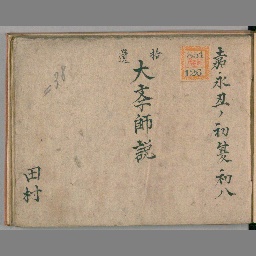 嘉永丑ノ初夏初八
拾
遺
大斎師説
田村
126